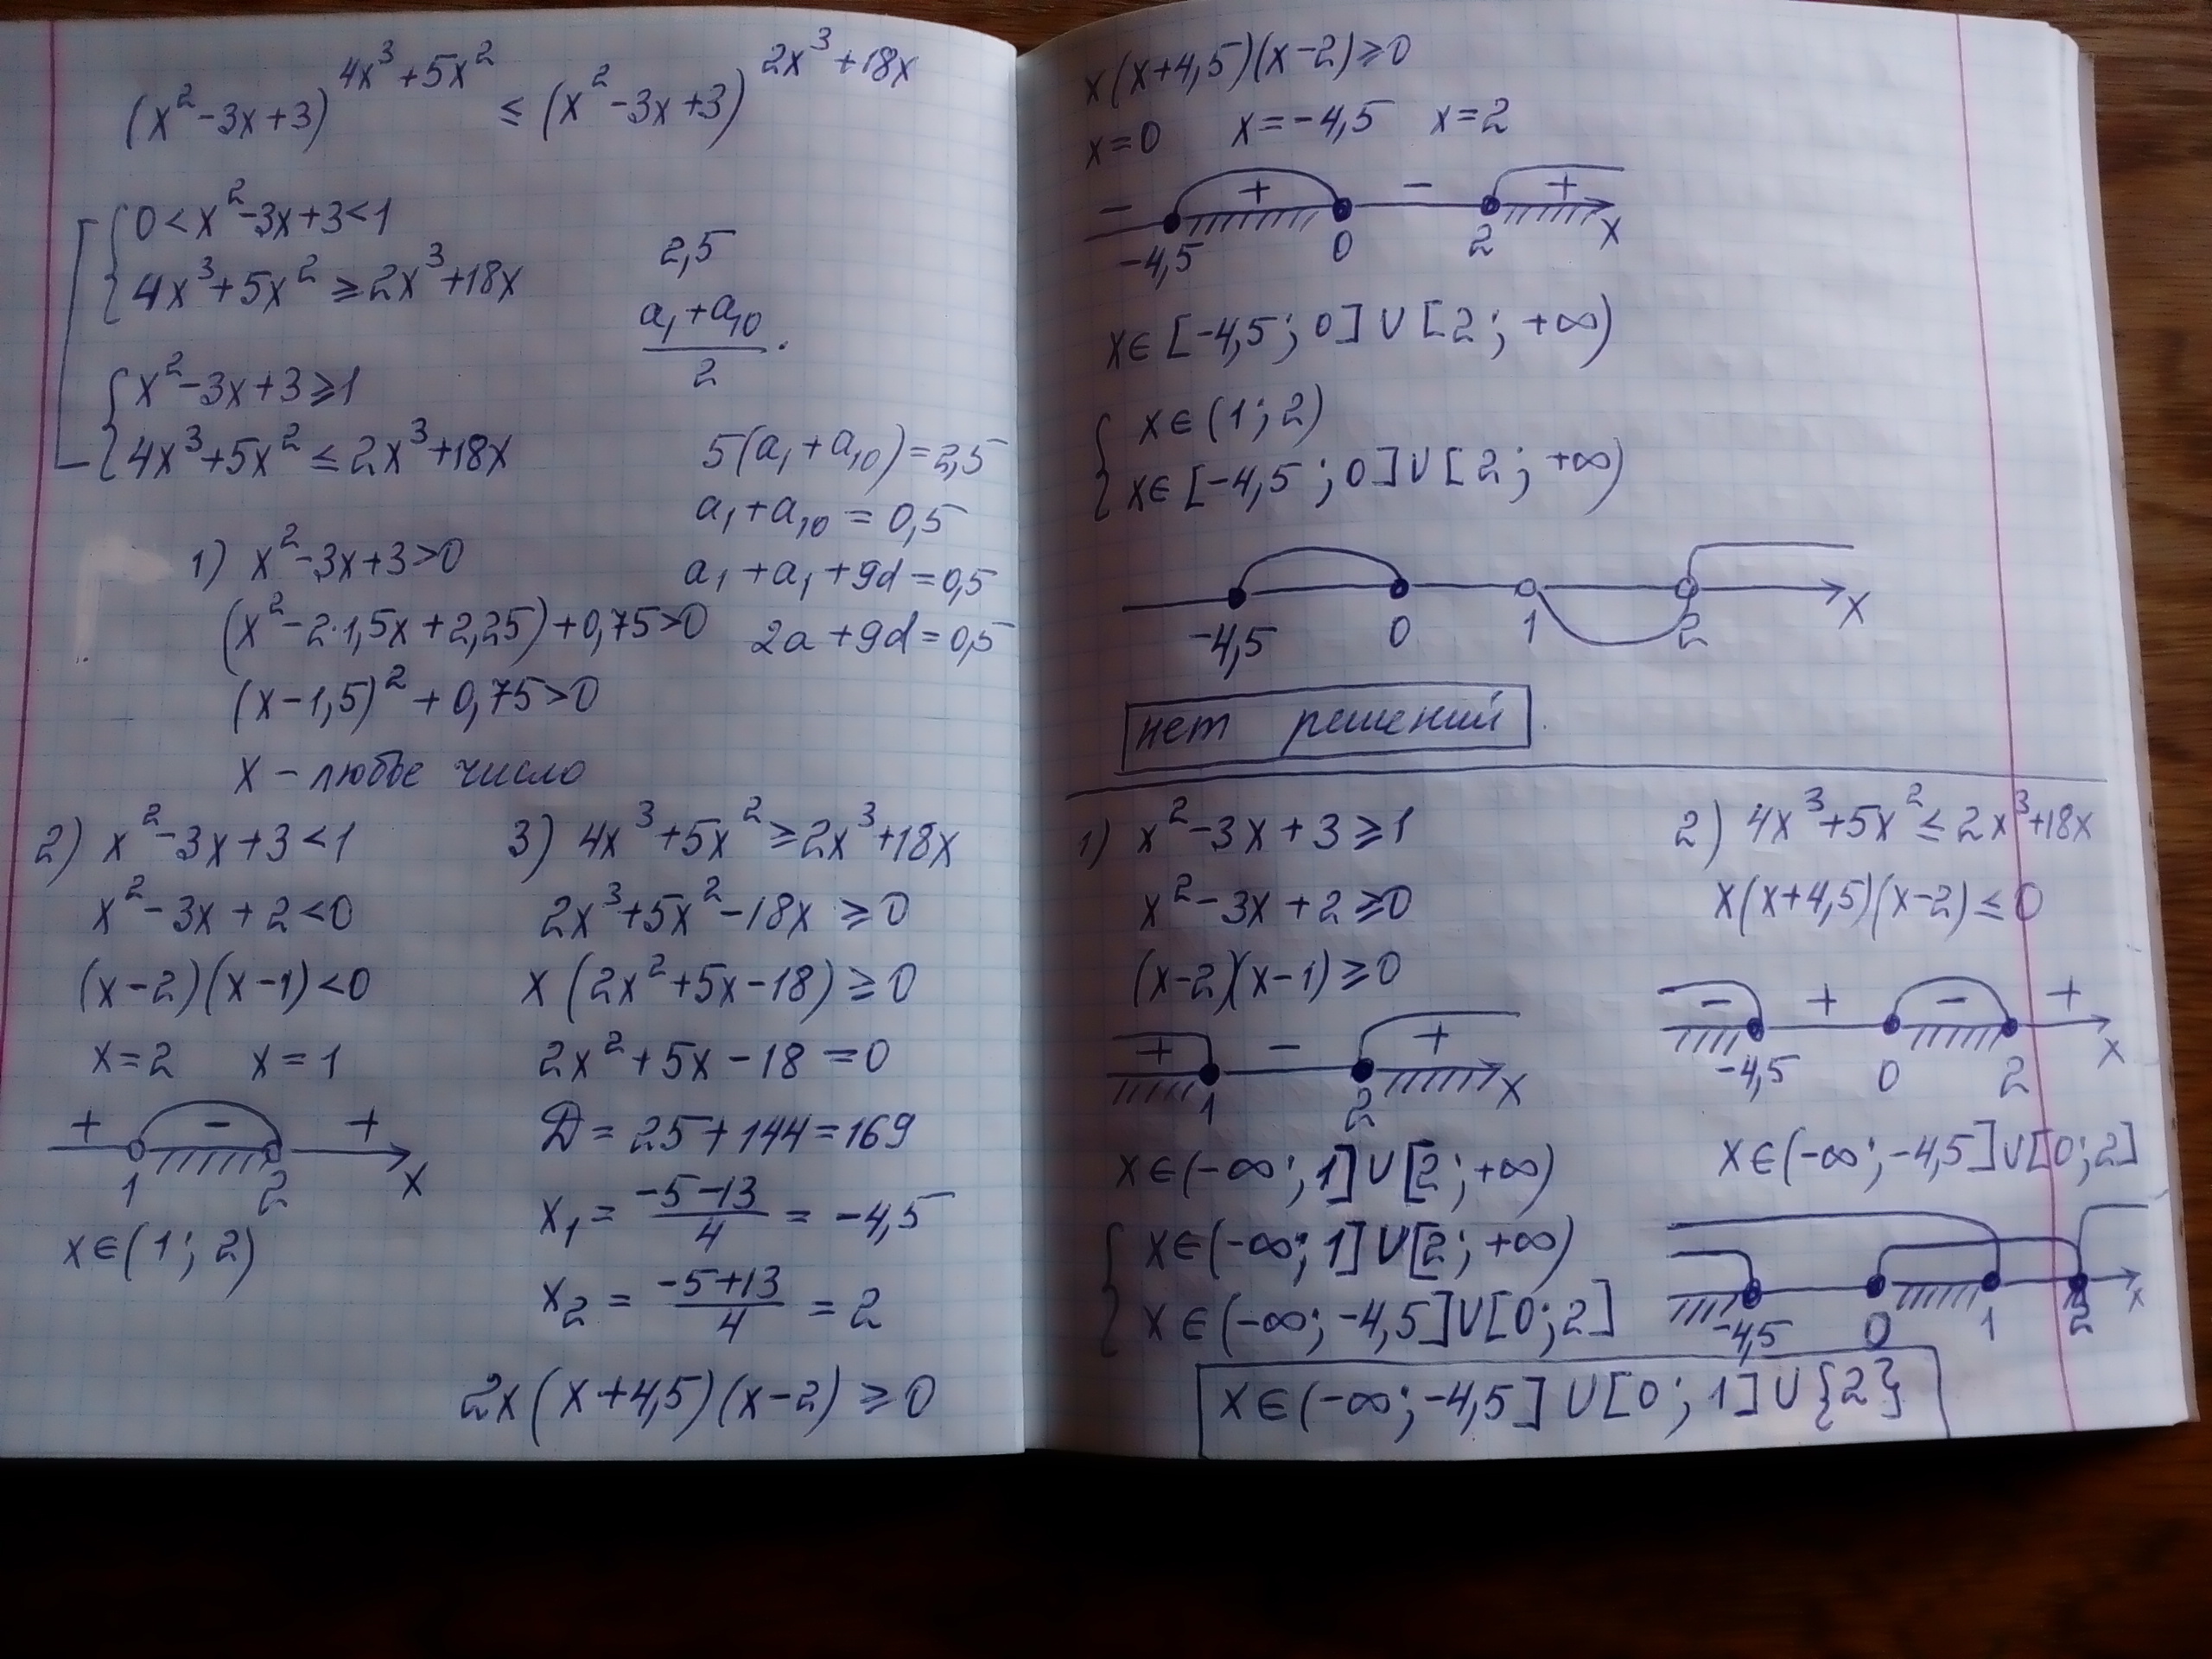 (x²-3x+3)^(4x³+5x²) ≤ (x²-3x+3)^(2x³+18x)
0<x²-3x+3<1
4x³+5x² ≥ 2x³+18x
x²-3x+3≥1
4x³+5x² ≤ 2x³+18x
2,5
(a₁+a₁₀)/2 ·
5(a₁+a₁₀)=2,5
a₁+a₁₀=0,5
a₁+a₁+9d=0,5
2a+9d=0,5
1) x²-3x+3>0
(x²-2·1,5x+2,25)+0,75>0
(x-1,5)²+0,75>0
x - любое число
2) x²-3x+3<1
x²-3x+2<0
(x-2)(x-1)<0
x=2 x=1
+ - +
1 2 x
x∈(1;2)
3) 4x³+5x²≥2x³+18x
2x³+5x²-18x≥0
x(2x²+5x-18)≥0
2x²+5x-18=0
D=25+144=169
x₁=(-5-13)/4=-4,5
x₂=(-5+13)/4=2
2x(x+4,5)(x-2)≥0
x(x+4,5)(x-2)≥0
x=0 x=-4,5 x=2
- + - +
-4,5 0 2 x
x∈[-4,5;0]∪[2;+∞)
x∈(1;2)
x∈[-4,5;0]∪[2;+∞)
-4,5 0 1 2 x
нет решений
1) x²-3x+3≥1
x²-3x+2≥0
(x-2)(x-1)≥0
+ - +
1 2 x
x∈(-∞;1]∪[2;+∞)
2) 4x³+5x²≤2x³+18x
x(x+4,5)(x-2)≤0
- + - +
-4,5 0 2 x
x∈(-∞;-4,5]∪[0;2]
x∈(-∞;1]∪[2;+∞)
x∈(-∞;-4,5]∪[0;2]
-4,5 0 1 2 x
x∈(-∞;-4,5]∪[0;1]∪{2}